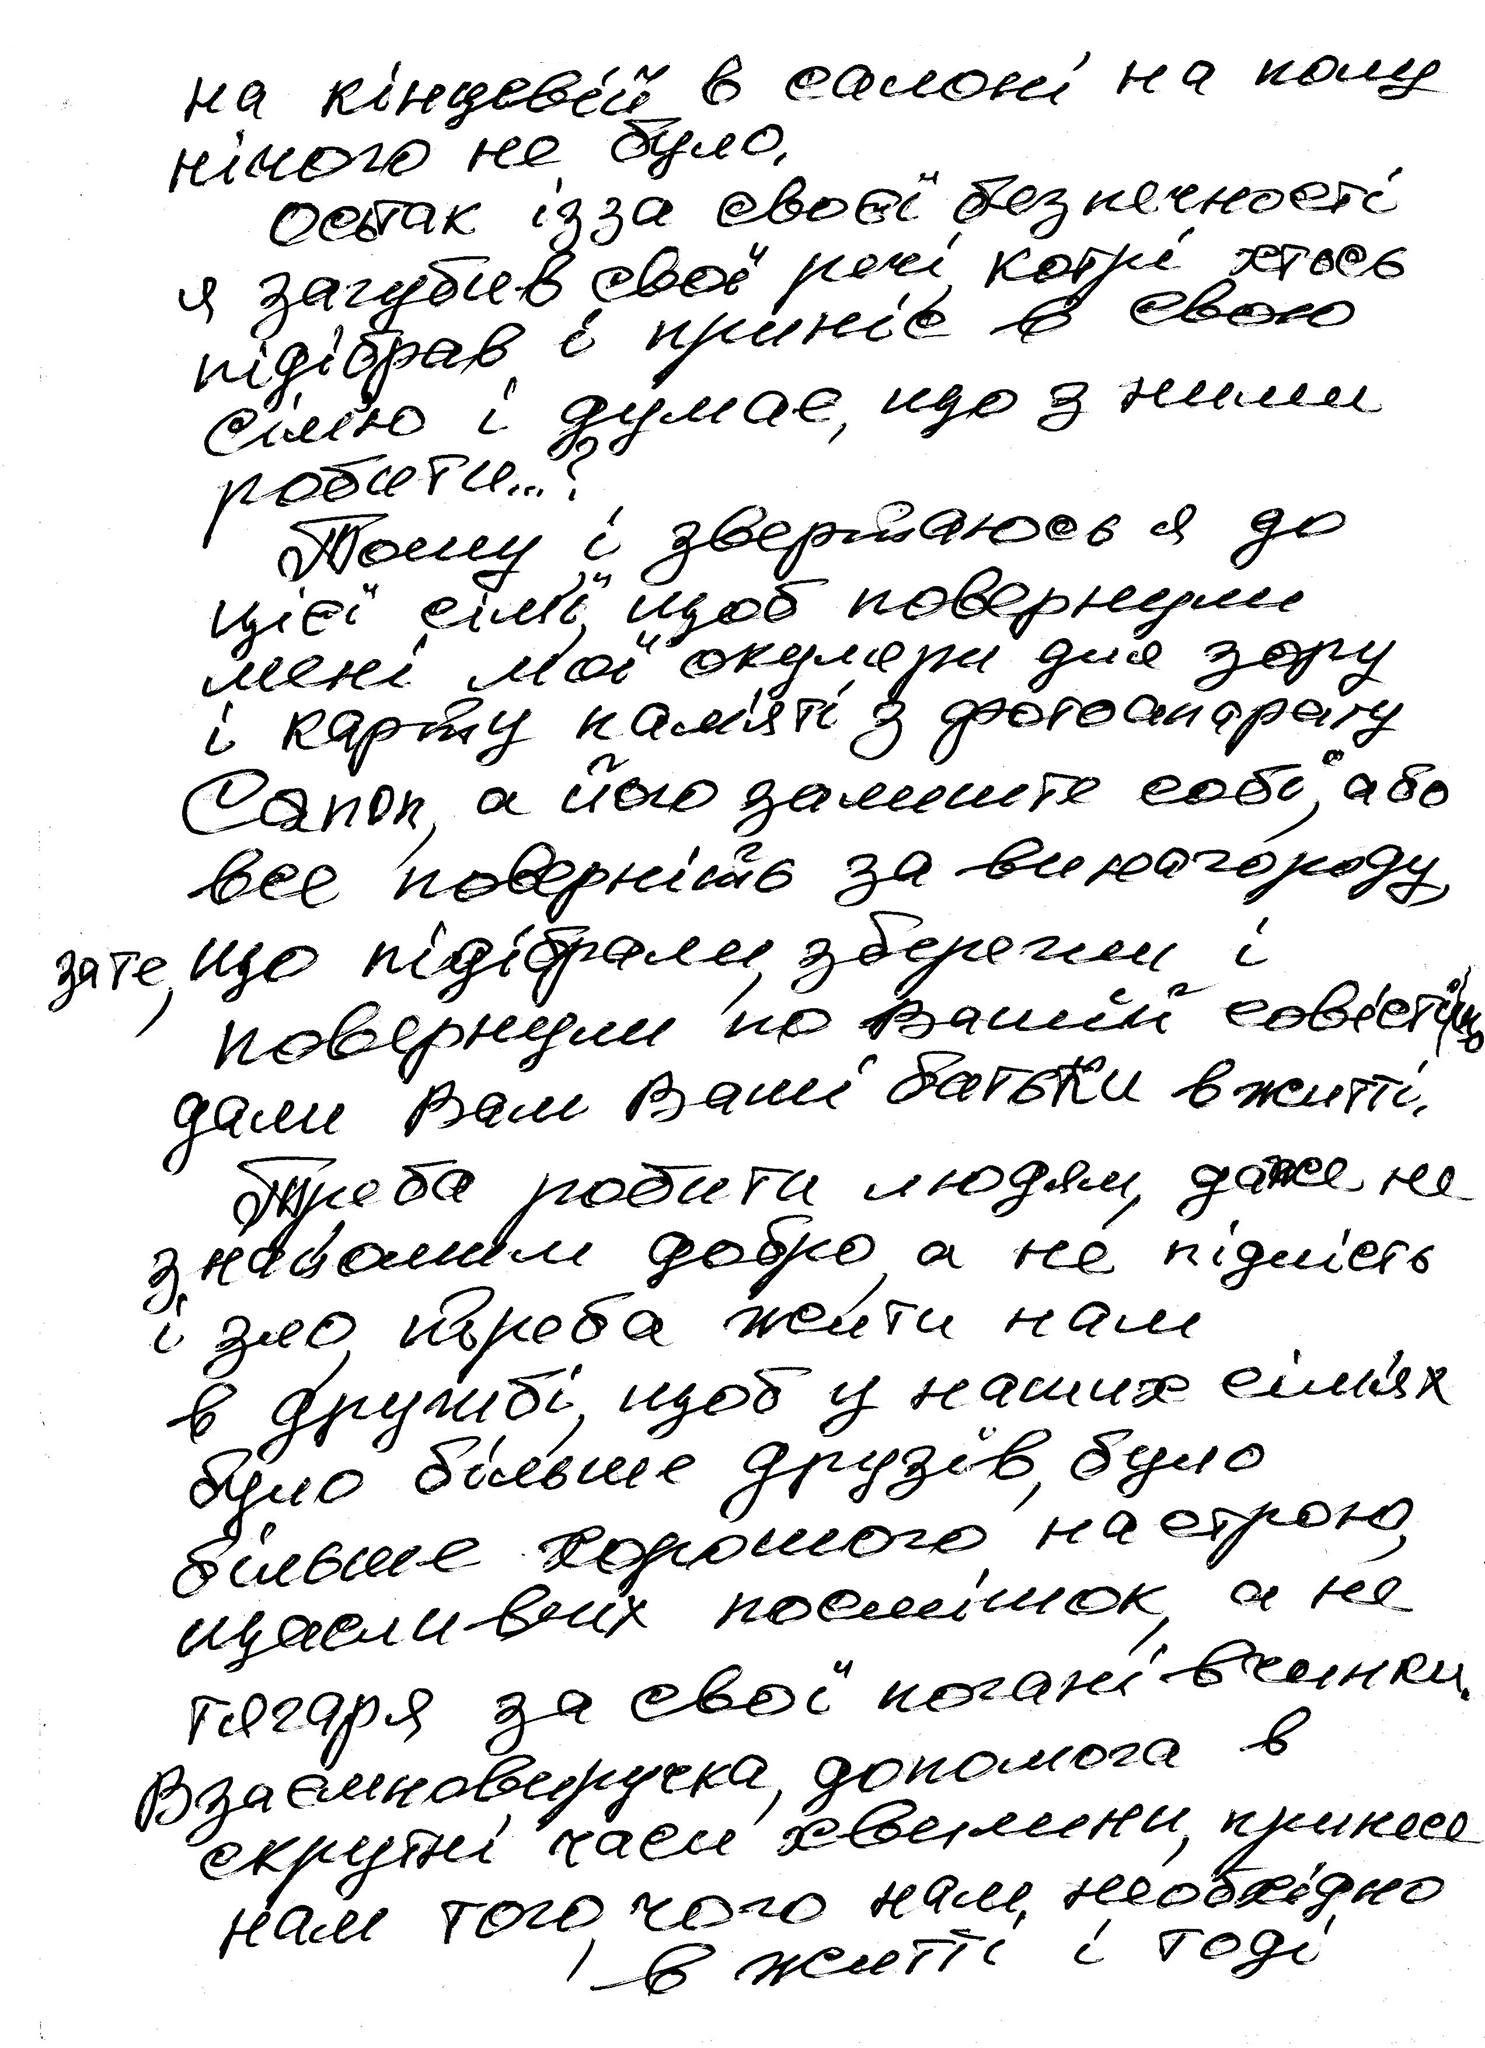 на кінцевій в салоні на полу
нічого не було.
Остак ізза своєї безпечності
я загубив свої речі, котрі хтось
підібрав і приніс в свою
сім'ю і думає, що з ними
робити...?
Тому і звертаюсь я до
цієї сім'ї, щоб повернули
мені мої окуляри для зору
і карту пам'яті з фотоапарату
Canon, а його залиште собі, або
все поверніть за винагороду
зате, що підібрали, зберегли і
повернули по Вашій совісті, що
дали Вам Ваші батьки в житті.
Треба робити людям, даже не
знайомим добро, а не підлість
і зло, треба жити нам
в дружбі, щоб у наших сім'ях
було більше друзів, було
більше хорошого настрою,
щасливих посмішок, а не
тягаря за свої погані вчинки.
Взаємновиручка, допомога в
скрутні часи хвилини, принесе
нам того, чого нам необхідно
в житті і тоді